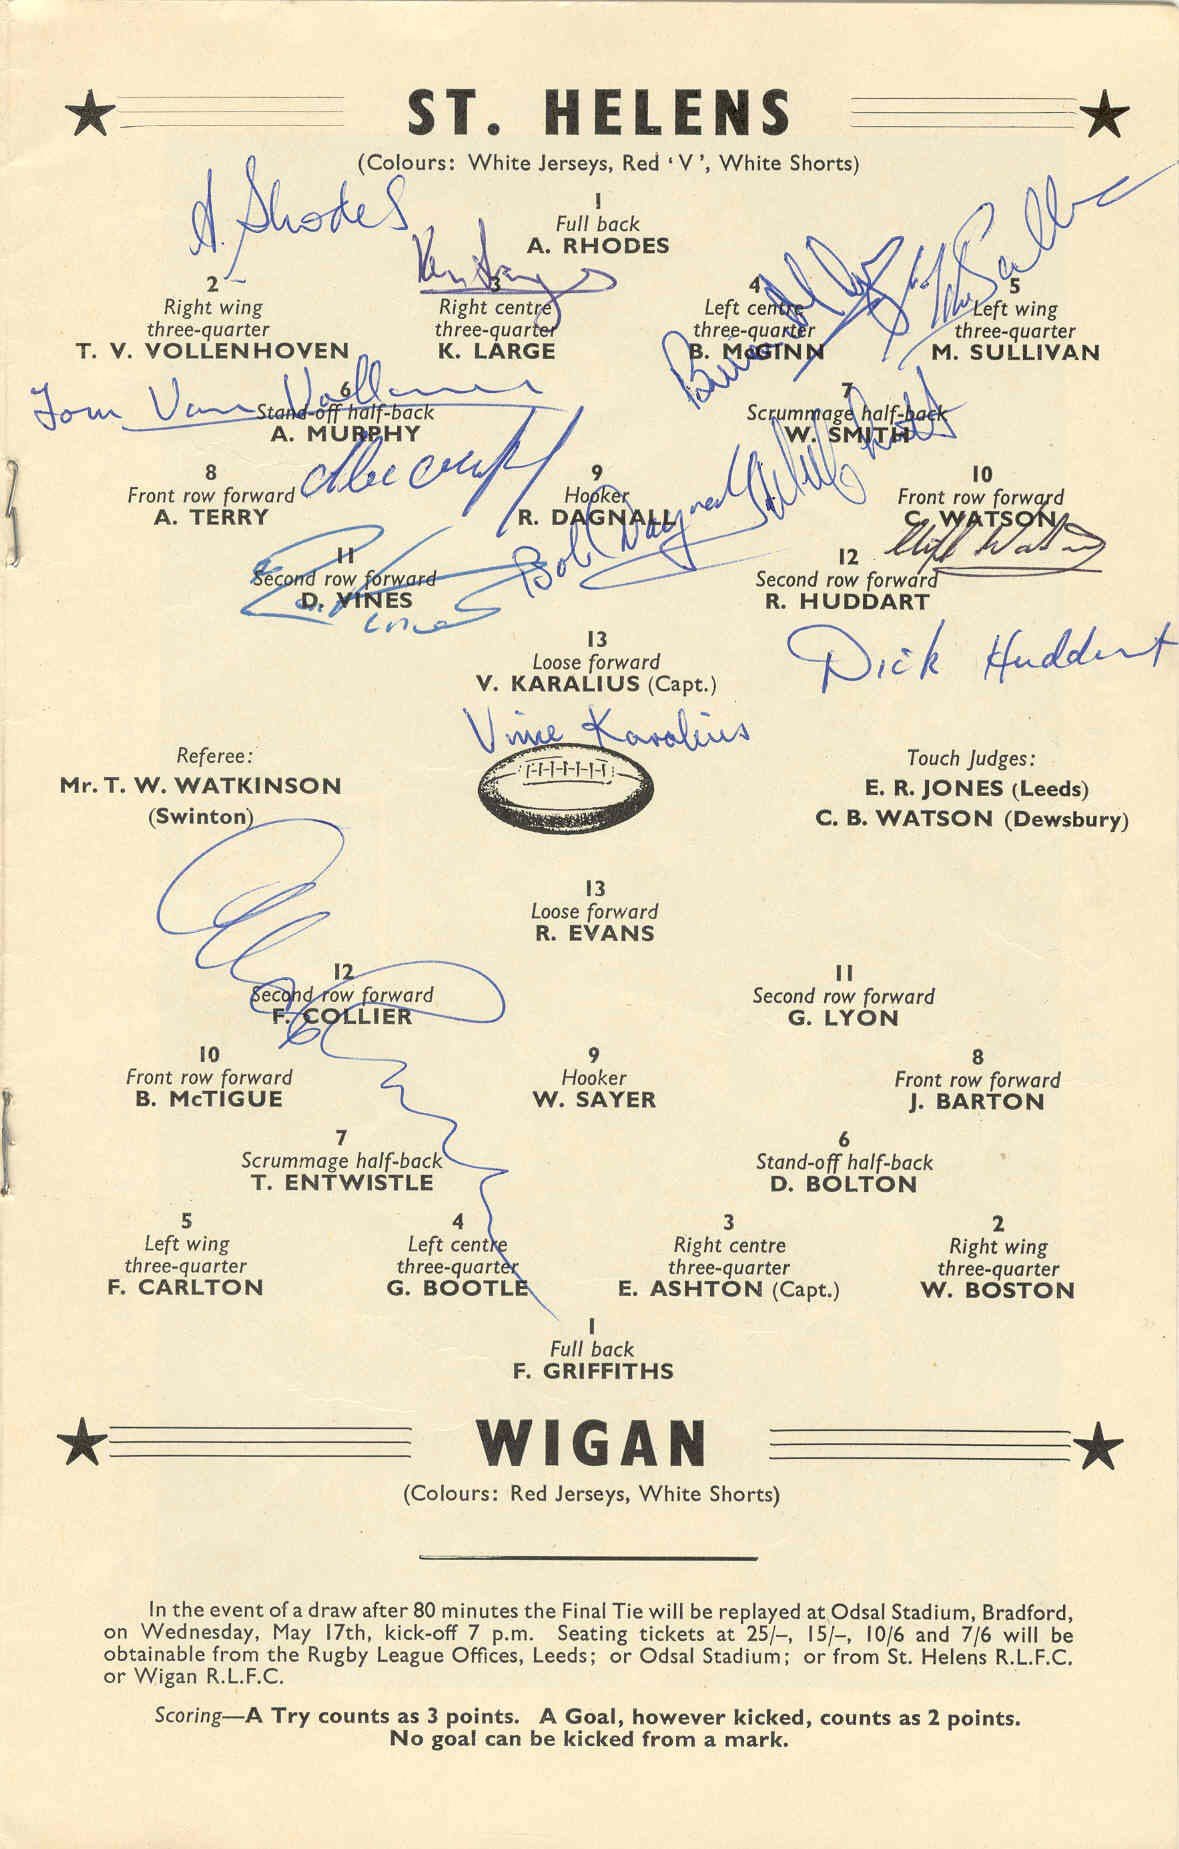 ST. HELENS
(Colours: White Jerseys, Red ‘V’, White Shorts)
1
Full back
A. RHODES
A. Rhodes
2
Right wing
three-quarter
T. V. VOLLENHOVEN
3
Right centre
three-quarter
K. LARGE
4
Left centre
three-quarter
B. McGINN
5
Left wing
three-quarter
M. SULLIVAN
Tom Van Vollenhoven
6
Stand-off half-back
A. MURPHY
Alec Murphy
7
Scrummage half-back
W. SMITH
8
Front row forward
A. TERRY
9
Hooker
R. DAGNALL
Bob Dagnall
10
Front row forward
C. WATSON
Cliff Watson
11
Second row forward
D. VINES
12
Second row forward
R. HUDDART
Dick Huddart
13
Loose forward
V. KARALIUS (Capt.)
Vince Karalius
Referee:
Mr. T. W. WATKINSON
(Swinton)
Touch Judges:
E. R. JONES (Leeds)
C. B. WATSON (Dewsbury)
13
Loose forward
R. EVANS
12
Second row forward
F. COLLIER
11
Second row forward
G. LYON
10
Front row forward
B. McTIGUE
9
Hooker
W. SAYER
8
Front row forward
J. BARTON
7
Scrummage half-back
T. ENTWISTLE
6
Stand-off half-back
D. BOLTON
5
Left wing
three-quarter
F. CARLTON
4
Left centre
three-quarter
G. BOOTLE
3
Right centre
three-quarter
E. ASHTON (Capt.)
2
Right wing
three-quarter
W. BOSTON
1
Full back
F. GRIFFITHS
WIGAN
(Colours: Red Jerseys, White Shorts)
In the event of a draw after 80 minutes the Final Tie will be replayed at Odsal Stadium, Bradford,
on Wednesday, May 17th, kick-off 7 p.m. Seating tickets at 25/–, 15/–, 10/6 and 7/6 will be
obtainable from the Rugby League Offices, Leeds; or Odsal Stadium; or from St. Helens R.L.F.C.
or Wigan R.L.F.C.
Scoring—A Try counts as 3 points. A Goal, however kicked, counts as 2 points.
No goal can be kicked from a mark.